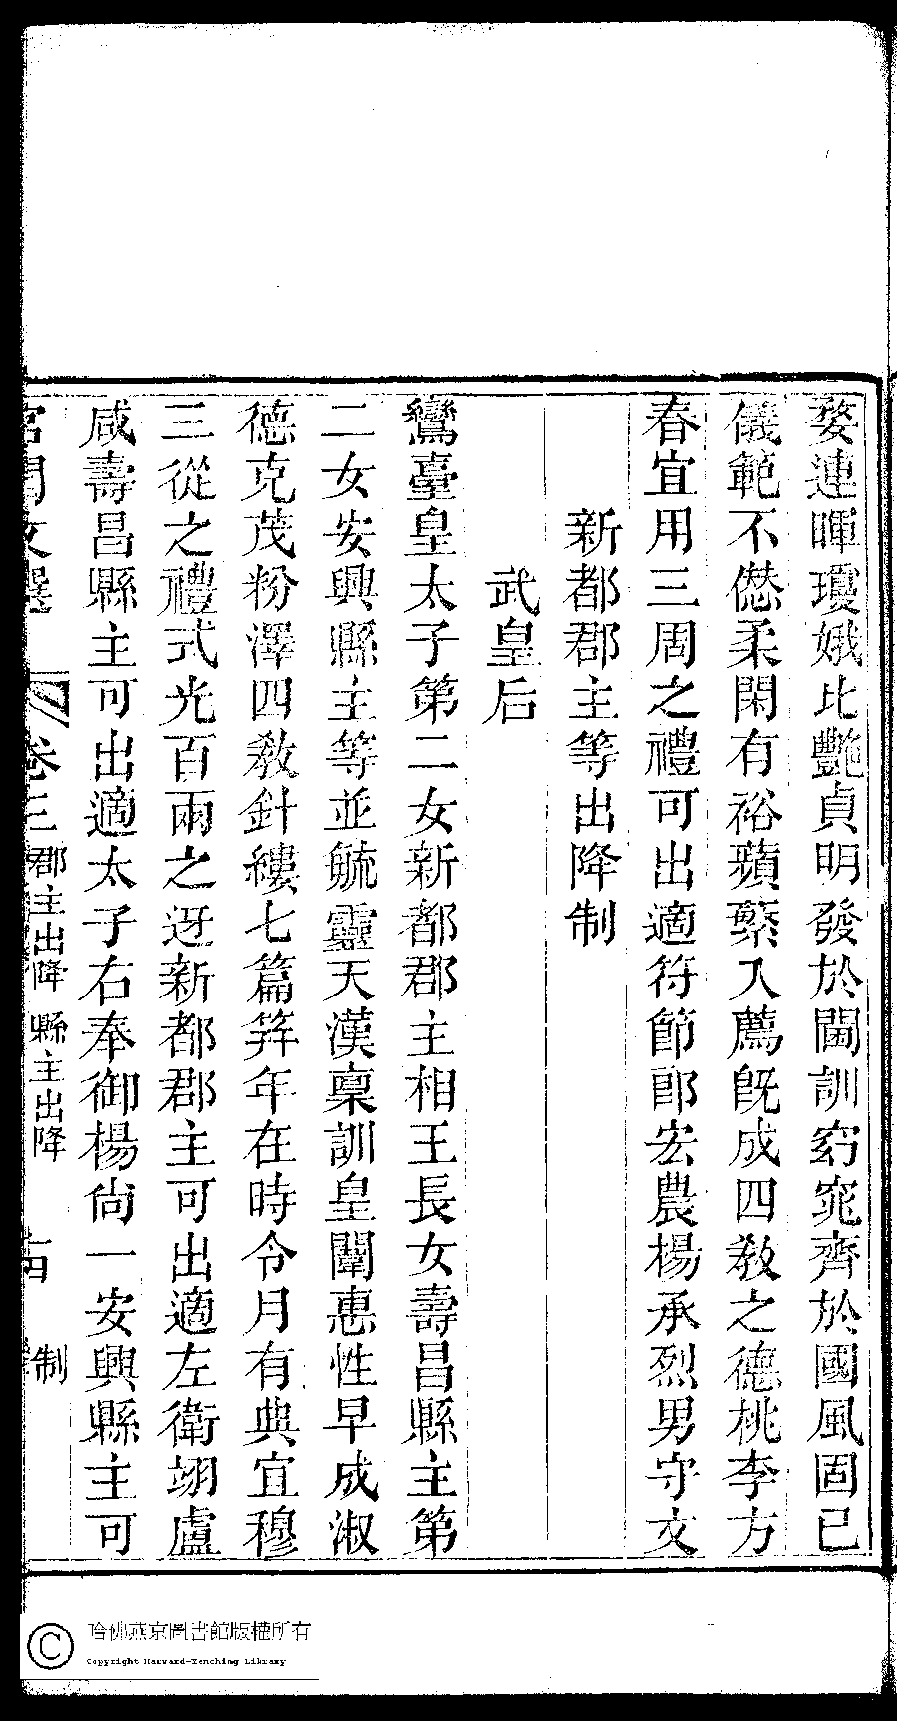 婺連暉瓊娥比艷貞明發於閫訓窈窕齊於國風固已
儀範不僁柔閑有裕蘋蘩入薦旣成四敎之德桃李方
春宜用三周之禮可出適符節郎宏農楊承烈男守文
新都郡主等出降制
武皇后
鸞臺皇太子第二女新都郡主相王長女壽昌縣主第
二女安興縣主等並毓靈天漢稟訓皇闈惠性早成淑
德克茂粉澤四敎針縷七篇筓年在時令月有典宜穆
三從之禮式光百兩之迓新都郡主可出適左衛翊盧
咸壽昌縣主可出適太子右奉御楊尙一安興縣主可
宮閨文選 卷三 郡主出降 縣主出降 古 制
哈佛燕京圖書館版權所有
Copyright Harvard-Yenching Library